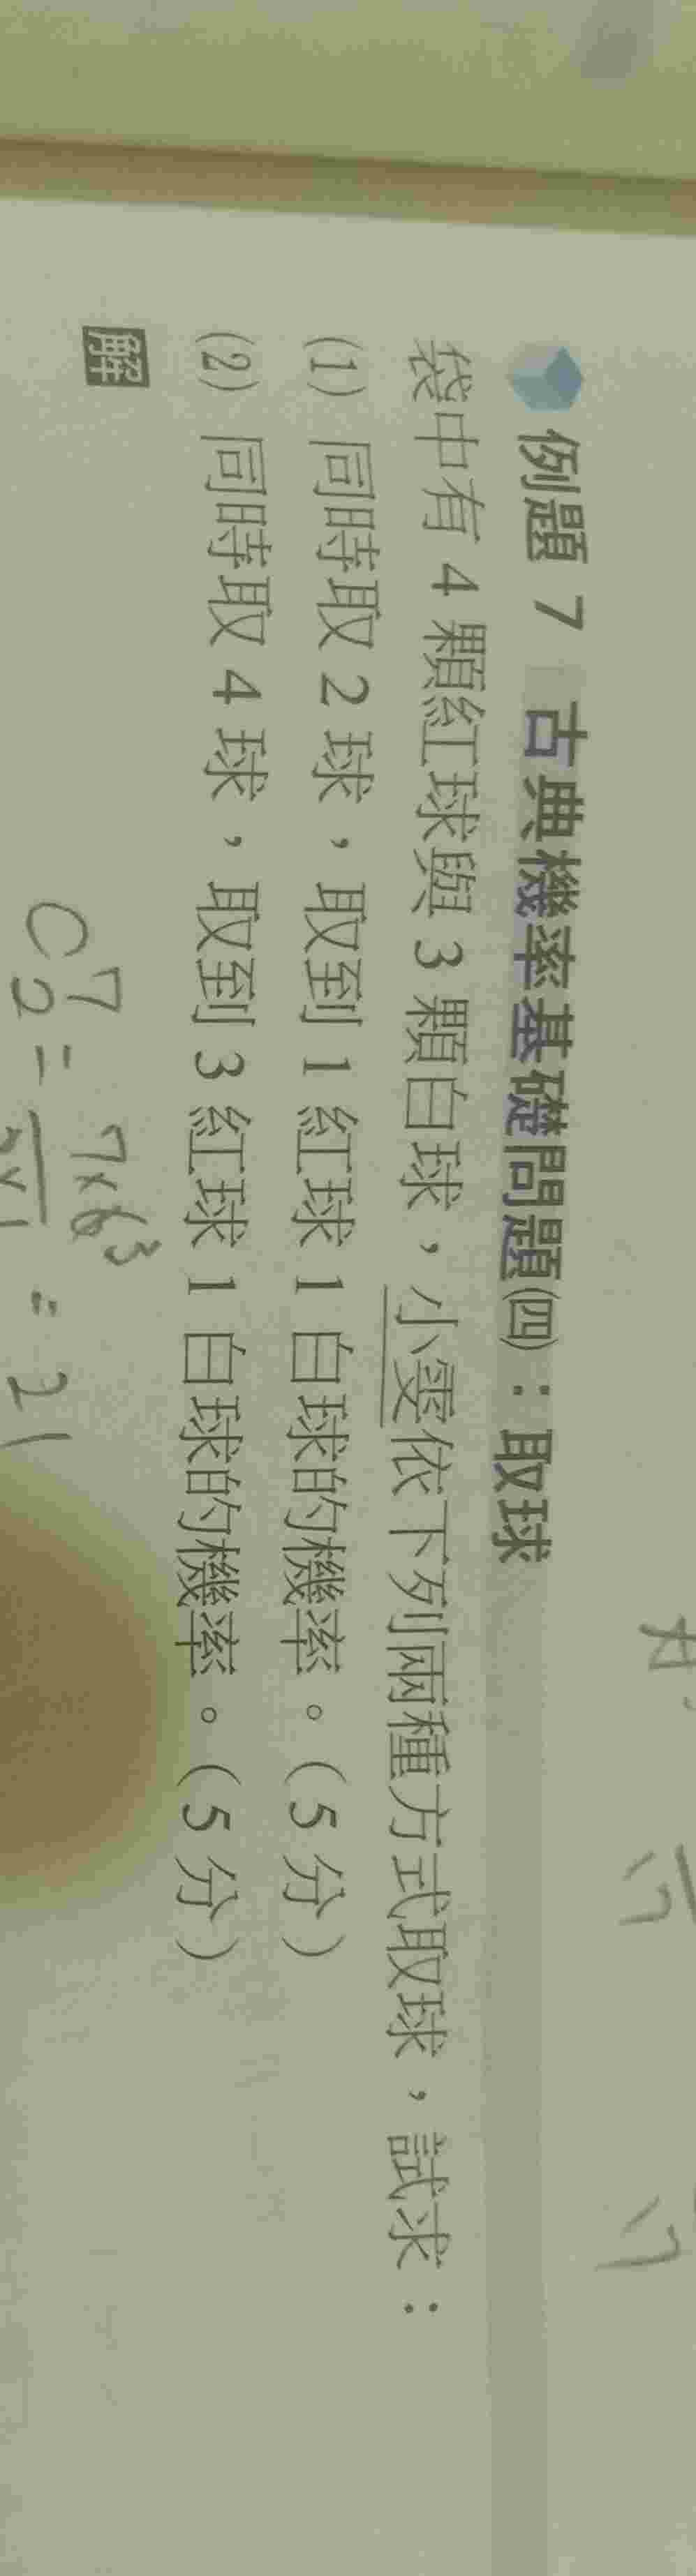 例題 7 古典機率基礎問題㈣：取球
袋中有 4 顆紅球與 3 顆白球，小雯依下列兩種方式取球，試求：
(1) 同時取 2 球，取到 1 紅球 1 白球的機率。（5 分）
(2) 同時取 4 球，取到 3 紅球 1 白球的機率。（5 分）
解
C⁷₂ = 7×6³ / 2×1 = 21